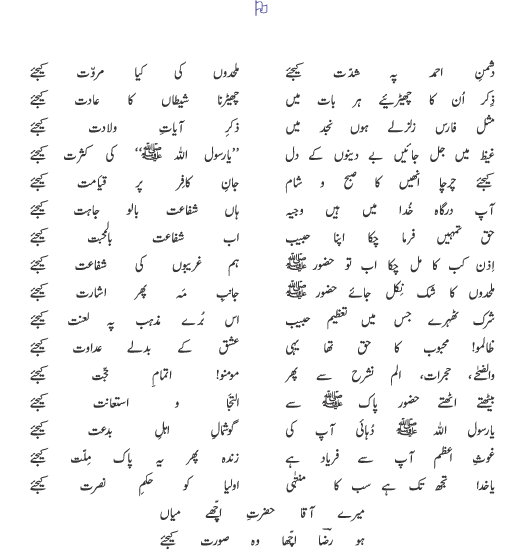 دشمنِ احمد پہ شدّت کیجئے ملحدوں کی کیا مروّت کیجئے
ذِکر اُن کا چھیڑئیے ہر بات میں چھیڑنا شیطاں کا عادت کیجئے
مثلِ فارس زلزلے ہوں نجد میں ذکرِ آیاتِ ولادت کیجئے
غیظ میں جل جائیں بے دینوں کے دل ’’یارسول اللہ ﷺ‘‘ کی کثرت کیجئے
کیجئے چرچا اُنھیں کا صبح و شام جانِ کافِر پر قیامت کیجئے
آپ درگاہِ خُدا میں ہیں وجیہ ہاں شفاعت بالوجاہت کیجئے
حق تمہیں فرما چکا اپنا حبیب اب شفاعت بالمحبت کیجئے
اِذن کب کا مل چکا اب تو حضور ﷺ ہم غریبوں کی شفاعت کیجئے
ملحدوں کا شک نِکل جائے حضور ﷺ جانبِ مَہ پھر اشارت کیجئے
شرک ٹھہرے جس میں تعظیمِ حبیب اس بُرے مذہب پہ لعنت کیجئے
ظالمو! محبوب کا حق تھا یہی عشق کے بدلے عداوت کیجئے
والضحٰے، حجرات، الم نشرح سے پھر مومنو! اتمامِ حجّت کیجئے
بیٹھتے اٹھتے حضورِ پاک ﷺ سے التجا و استعانت کیجئے
یارسول اللہ ﷺ دُہائی آپ کی گوشمالِ اہلِ بدعت کیجئے
غوثِ اعظم آپ سے فریاد ہے زندہ پھر یہ پاک مِلّت کیجئے
یاخدا تجھ تک ہے سب کا منتہٰی اولیا کو حکمِ نصرت کیجئے
میرے آقا حضرتِ اچھے میاں
ہو رضؔا اچھا وہ صورت کیجئے